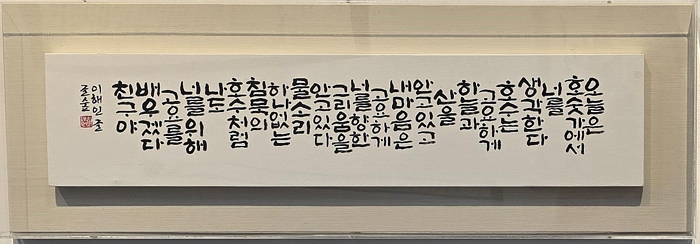 오늘은
호숫가에서
너를
생각한다
호수는
고요하게
하늘과
산을
안고 있고
내 마음은
고요하게
너를 향한
그리움을
안고 있다
물소리
하나 없는
침묵의
호수처럼
나도
너를 위해
고요를
배우겠다
친구야
이해인 글